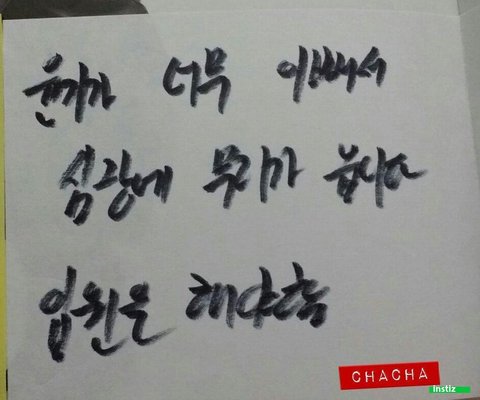 윤기가 너무 이뻐서
심장에 무리가 옵니다
입원을 해야함
CHACHA
Instiz